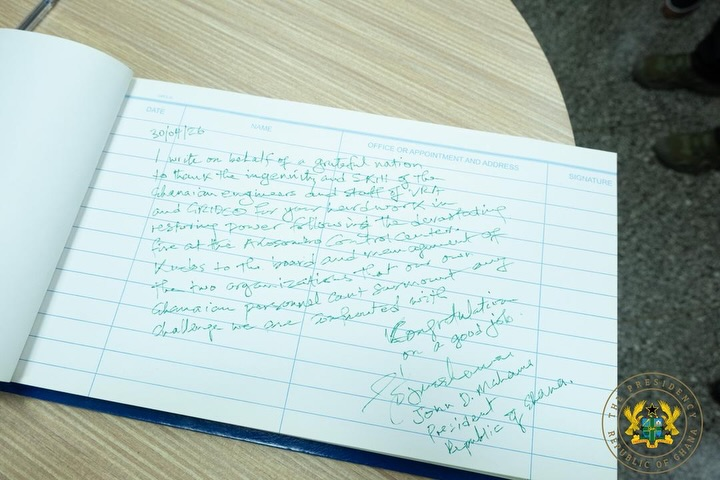 DATE
NAME
OFFICE OR APPOINTMENT AND ADDRESS
SIGNATURE
30/04/26
I write on behalf of a grateful nation
to thank the ingenuity and skill of the
Ghanaian engineers and staff of VRA
and GRIDCO for your hard work in
restoring power following the devastating
fire at the Akosombo Control Center.
Kudos to the board and management of
the two organizations that our own
Ghanaian personnel can surmount any
challenge we are confronted with
Congratulations
on a good job.
John D. Mahama
President
Republic of Ghana.
THE PRESIDENCY
REPUBLIC OF GHANA